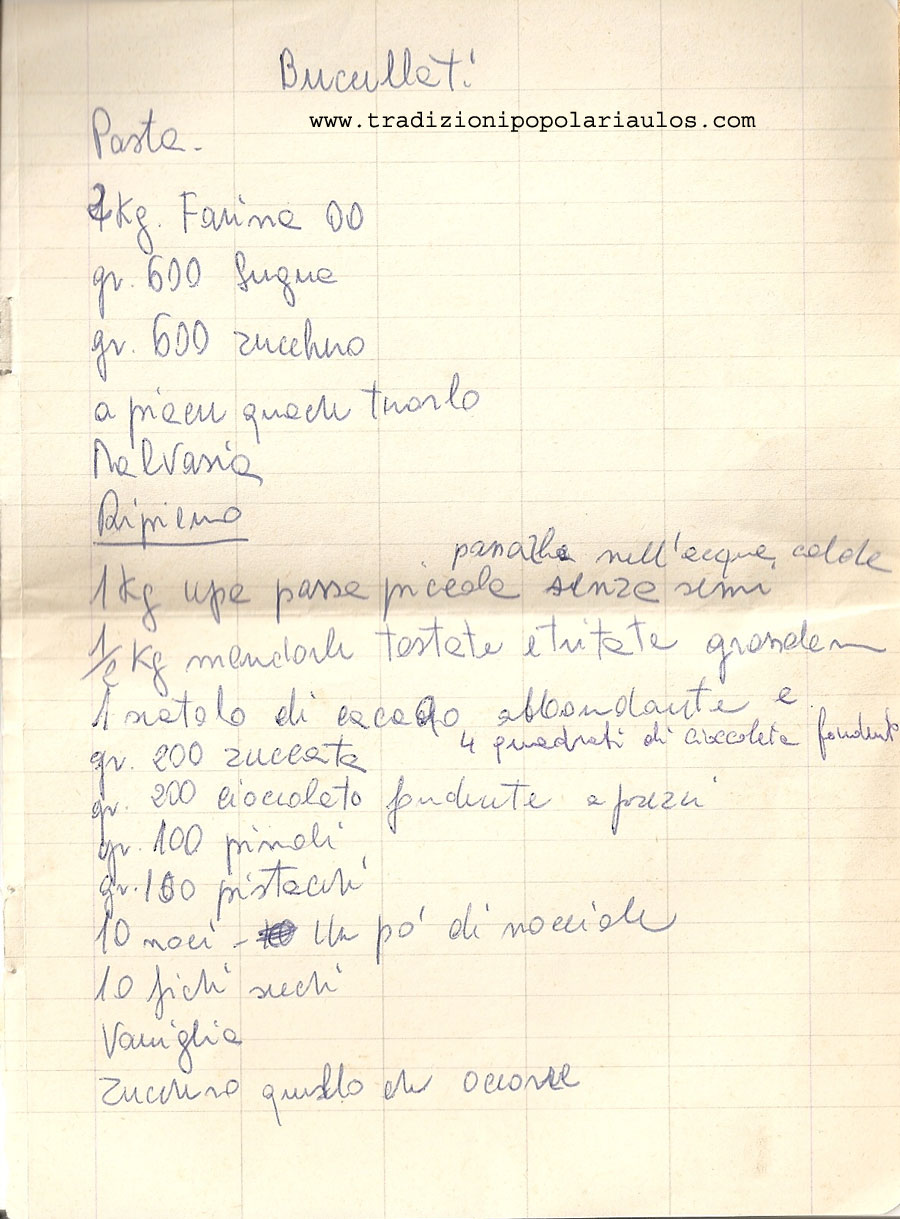 Bucullati
www.tradizionipopolariaulos.com
Pasta -
2 Kg. Farina 00
gr. 600 Sugna
gr. 600 zucchero
a piacere qualche tuorlo
Malvasia
Ripieno
passarla nell'acqua calda
1 Kg uva passa piccola senza semi
1/2 Kg mandorle tostate e tritate
1 scatolo di cacao abbondante e
4 quadrati di cioccolata fondente
gr. 200 zuccata
gr. 200 cioccolato fondente a pezzi
gr. 100 pinoli
gr. 100 pistacchi
10 noci - Un po' di nocciole
10 fichi secchi
Vaniglia
Zucchero quello che occorre